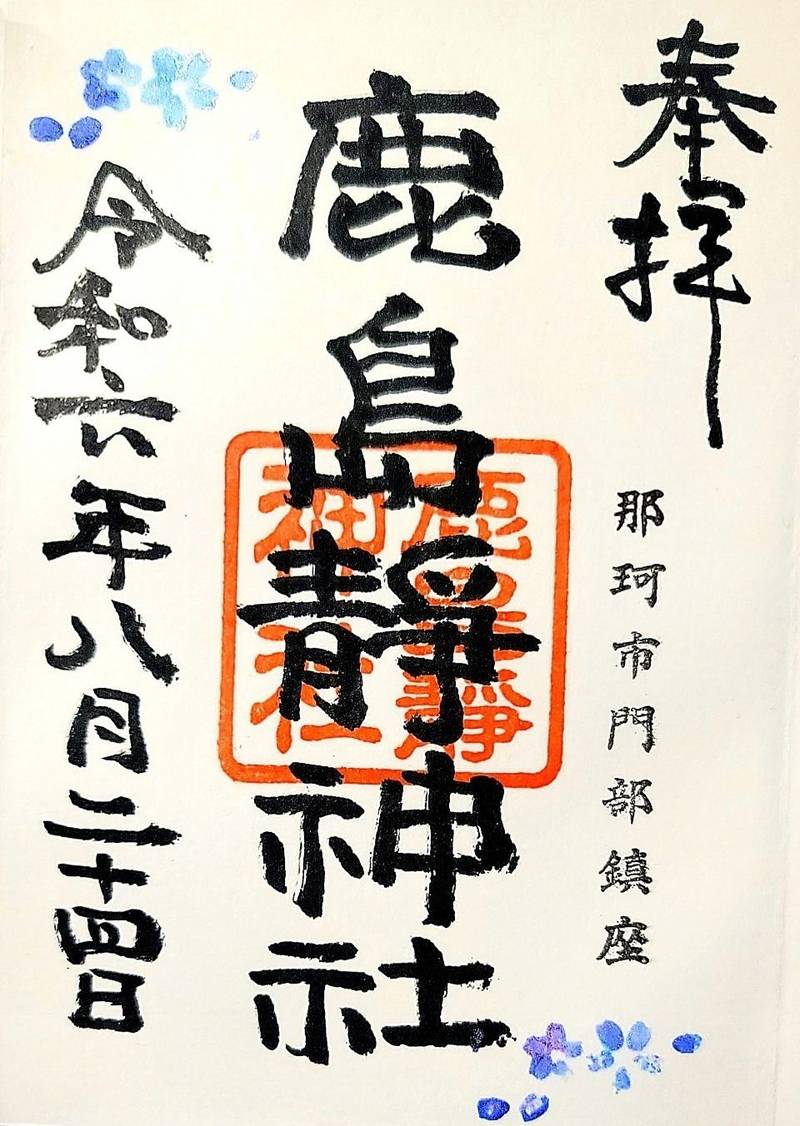 奉拝
那珂市門部鎮座
鹿島靜神社
鹿島靜
神社
令和六年八月二十四日